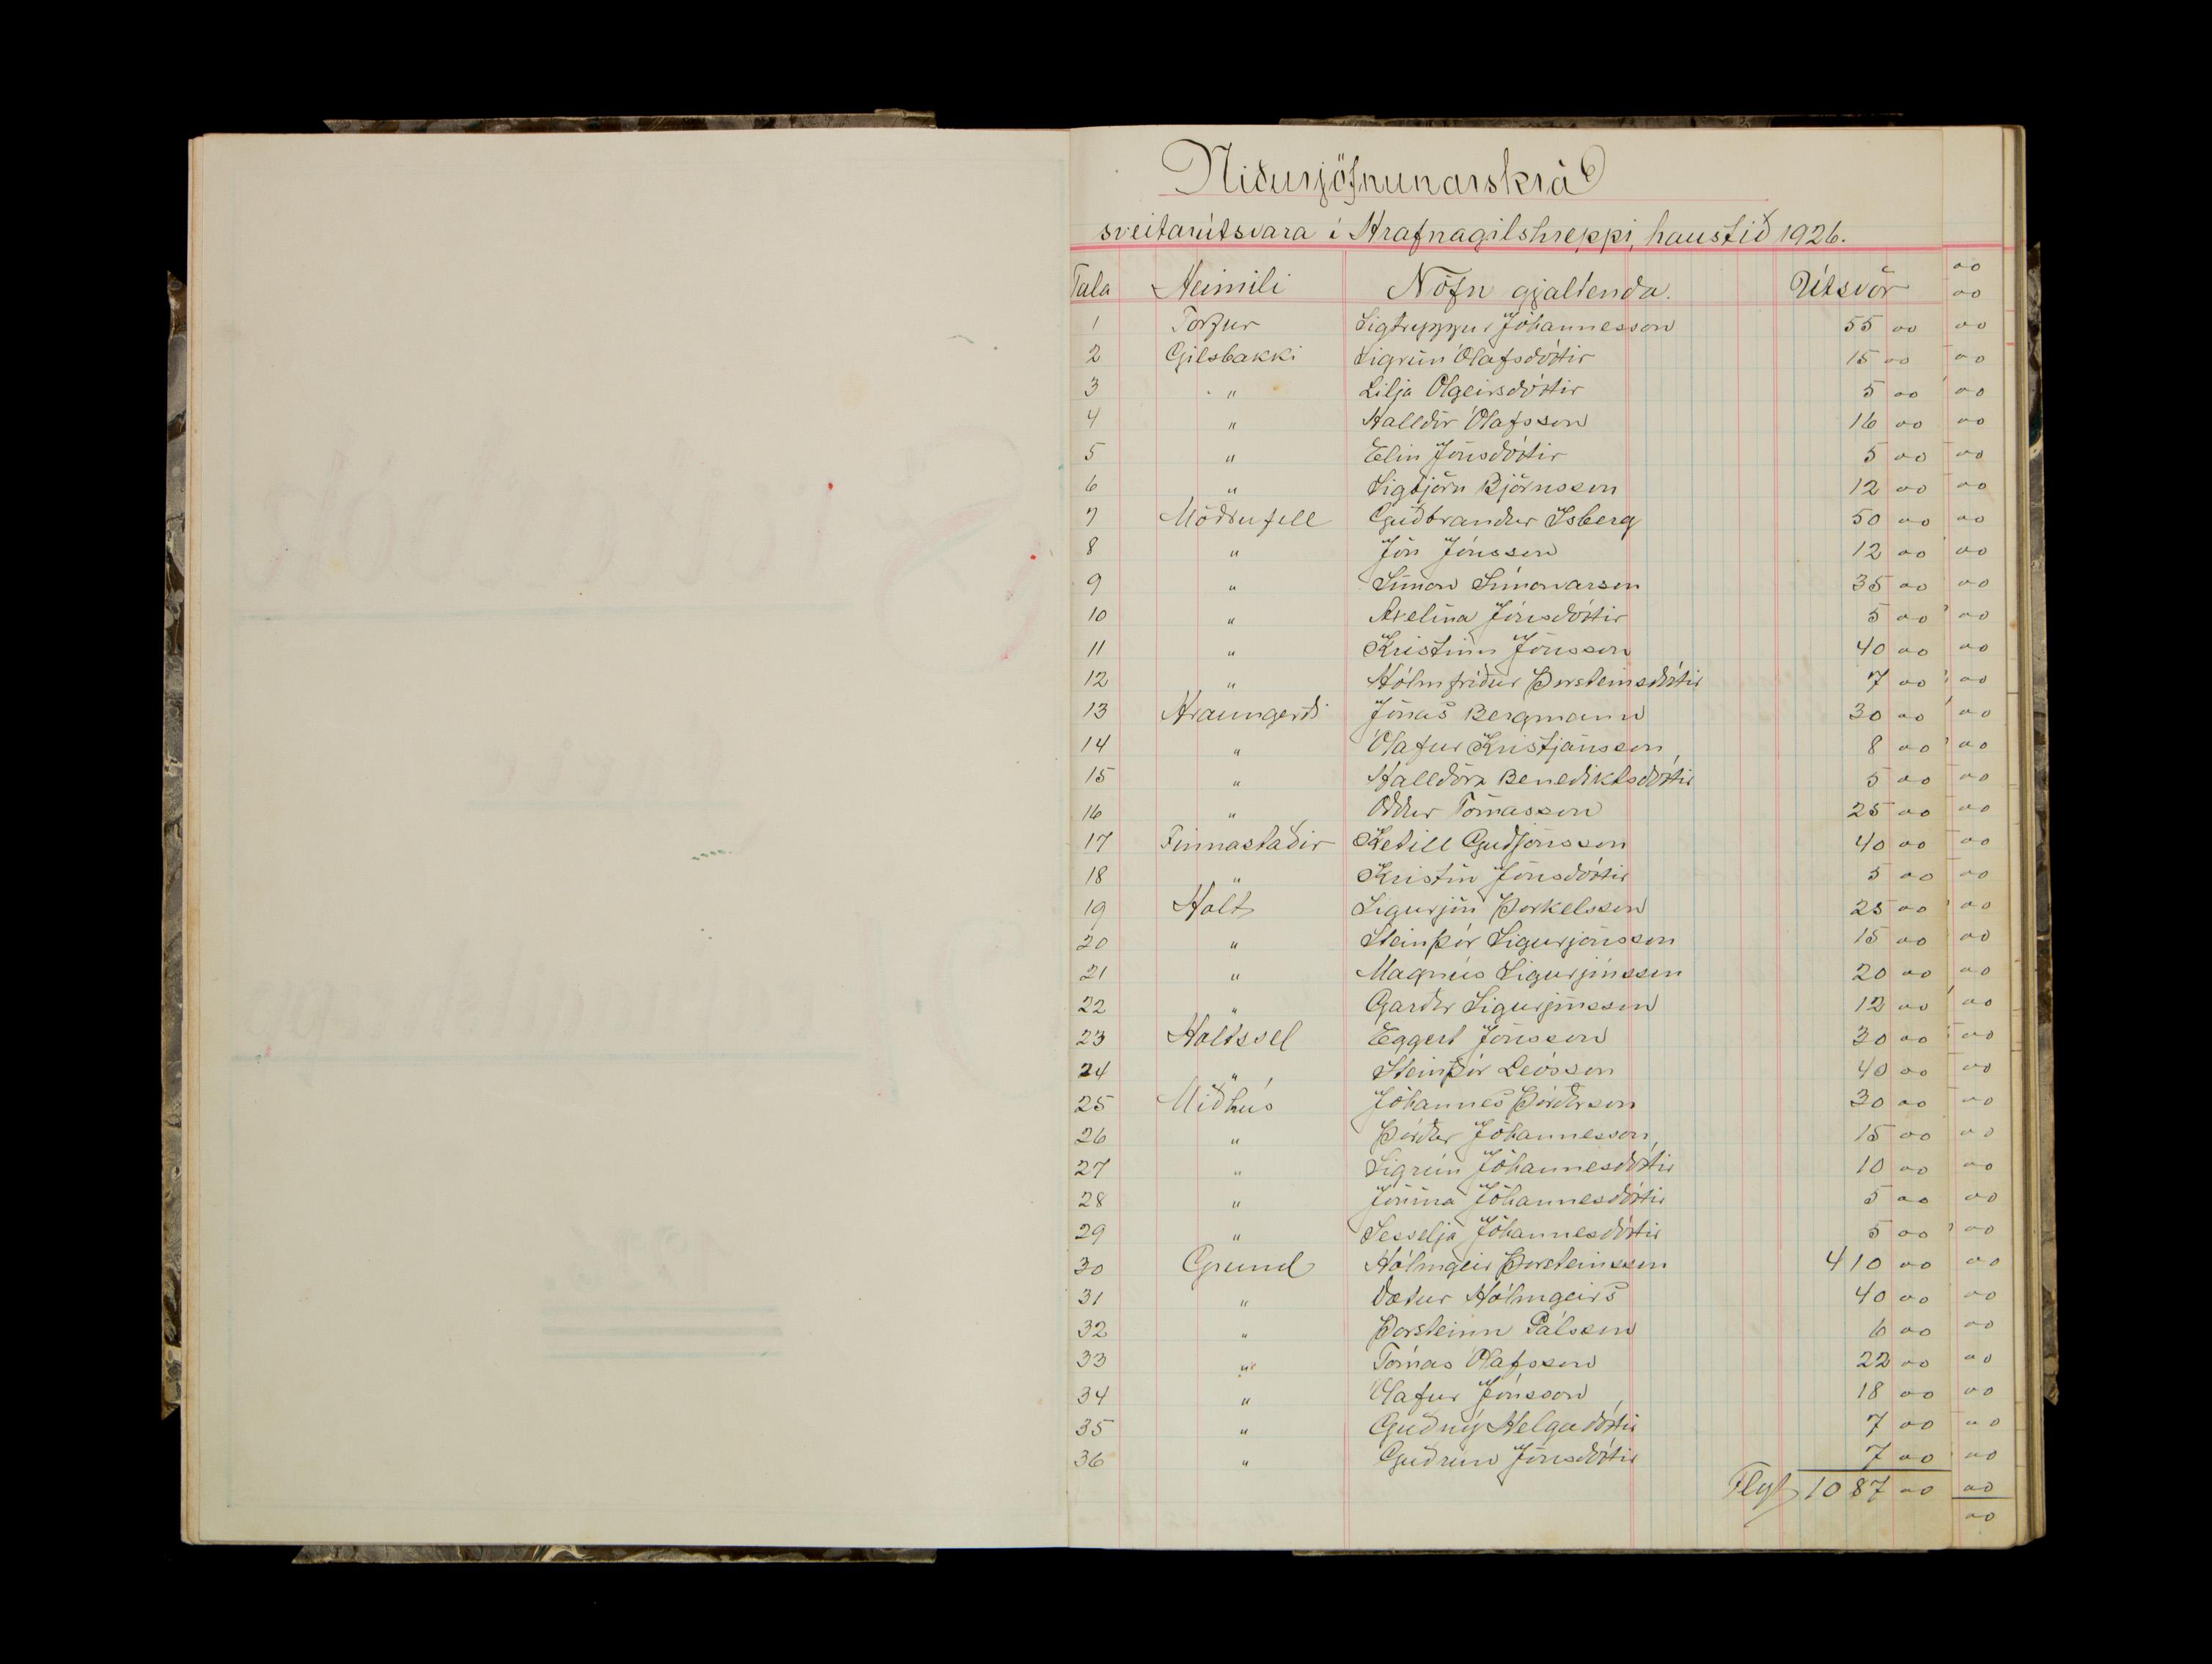 Niðurjöfnunarskrá
sveitarútsvara í Hrafnagilshreppi, haustið 1926.
Tala Heimili Nöfn gjaldenda. Útsvör
1 Torfur Sigtryggur Jóhannesson 55 00
2 Gilsbakki Sigrún Ólafsdóttir 15 00
3 " Lilja Olgeirsdóttir 5 00
4 " Halldór Ólafsson 16 00
5 " Elín Jónsdóttir 5 00
6 " Sigbjörn Björnsson 12 00
7 Möðrufell Guðbrandur Ísberg 50 00
8 " Jón Jónsson 12 00
9 " Símon Símonarson 35 00
10 " Axelína Jónsdóttir 5 00
11 " Kristinn Jónsson 40 00
12 " Hólmfríður Þorsteinsdóttir 7 00
13 Hraungerði Jónas Bergmann 30 00
14 " Ólafur Kristjánsson 8 00
15 " Halldóra Benediktsdóttir 5 00
16 " Oddur Tómasson 25 00
17 Finnastaðir Ketill Guðjónsson 40 00
18 " Kristín Jónsdóttir 5 00
19 Holt Sigurjón Þorkelsson 25 00
20 " Steinþór Sigurjónsson 15 00
21 " Magnús Sigurjónsson 20 00
22 " Garðar Sigurjónsson 12 00
23 Holtssel Eggert Jónsson 30 00
24 " Steinþór Leósson 40 00
25 Miðhús Jóhannes Þórðarson 30 00
26 " Þórður Jóhannesson 15 00
27 " Sigrún Jóhannesdóttir 10 00
28 " Jónína Jóhannesdóttir 5 00
29 " Sesselja Jóhannesdóttir 5 00
30 Grund Hólmgeir Þorsteinsson 410 00
31 " Dætur Hólmgeirs 40 00
32 " Þorsteinn Pálsson 6 00
33 " Tómas Ólafsson 22 00
34 " Ólafur Jónsson 18 00
35 " Guðný Helgadóttir 7 00
36 " Guðrún Jónsdóttir 7 00
Flyt 1087 00